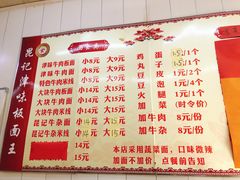 昆记津味板面王
津味牛肉板面 小8元 大9元
津味牛肉面 小8元 大9元
特色牛肉米线 小8元 大9元
大块牛肉板面 小14元 大15元
大块牛肉面 小14元 大15元
大块牛肉米线 小14元 大15元
昆记牛杂面 小14元 大15元
昆记牛杂米线 小14元 大15元
14元
15元
鸡蛋 1个
豆皮 1个
丸子 1元/1个
豆泡 2元/4个
火腿 1元/1个
加菜 (时令价)
加牛肉 8元/份
加牛杂 8元/份
本店采用蔬菜面,口味微辣
加面不加价,点餐前告知